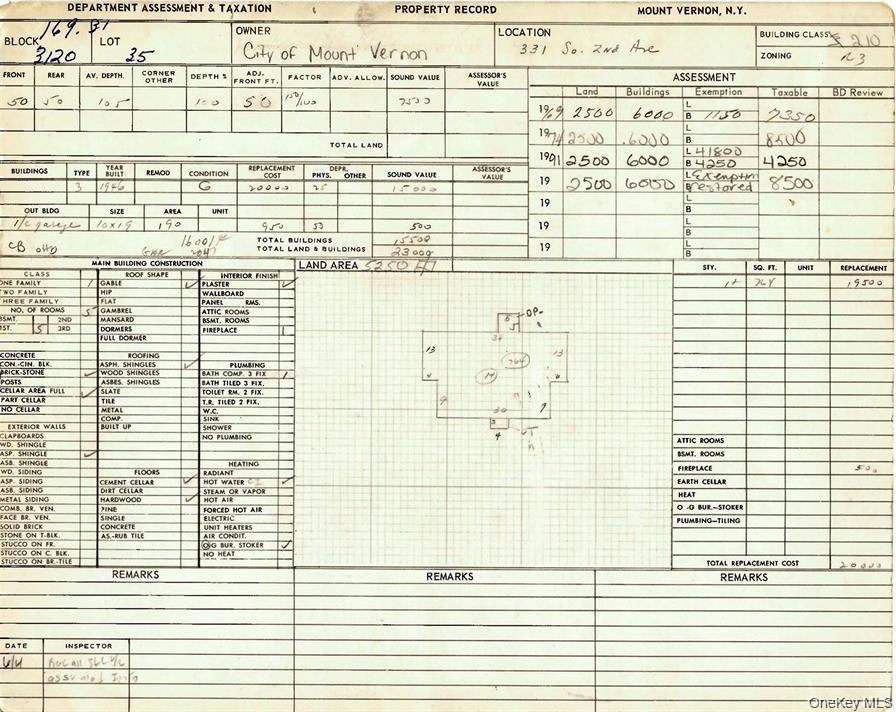 DEPARTMENT ASSESSMENT & TAXATION PROPERTY RECORD MOUNT VERNON, N.Y.
BLOCK 169.31 3120 LOT 35
OWNER City of Mount Vernon
LOCATION 331 So. 2nd Ave
BUILDING CLASS 210
ZONING R3
FRONT REAR AV. DEPTH. CORNER OTHER DEPTH % ADJ. FRONT FT. FACTOR ADV. ALLOW. SOUND VALUE ASSESSOR'S VALUE
50 50 105 100 50 150/100 7500
TOTAL LAND
ASSESSMENT
Land Buildings Exemption Taxable BD Review
1969 2500 6000 L B 1150 7350
1974 2500 6000 L B 8500
1991 2500 6000 L 41800 B 4250 4250
19 2500 6000 L Exemption B restored 8500
19 L B
19 L B
19 L B
BUILDINGS TYPE YEAR BUILT REMOD CONDITION REPLACEMENT COST DEPR. PHYS. OTHER SOUND VALUE ASSESSOR'S VALUE
3 1946 G 20000 25 15000
OUT BLDG SIZE AREA UNIT
1/c garage 10x19 190 950 50 500
CB OHD
TOTAL BUILDINGS 15500
TOTAL LAND & BUILDINGS 23000
MAIN BUILDING CONSTRUCTION
CLASS
ONE FAMILY 1
TWO FAMILY
THREE FAMILY
NO. OF ROOMS 5
BSMT. 2ND
1ST. 5 3RD
CONCRETE
CON.-CIN. BLK.
BRICK-STONE
POSTS
CELLAR AREA FULL
PART CELLAR
NO CELLAR
EXTERIOR WALLS
CLAPBOARDS
WD. SHINGLE
ASP. SHINGLE
ASB. SHINGLE
WD. SIDING
ASP. SIDING
ASB. SIDING
METAL SIDING
COMB. BR. VEN.
FACE BR. VEN.
SOLID BRICK
STONE ON T-BLK.
STUCCO ON FR.
STUCCO ON C. BLK.
STUCCO ON BR.-TILE
ROOF SHAPE
GABLE
HIP
FLAT
GAMBREL
MANSARD
DORMERS
FULL DORMER
ROOFING
ASPH. SHINGLES
WOOD SHINGLES
ASBES. SHINGLES
SLATE
TILE
METAL
COMP.
BUILT UP
FLOORS
CEMENT CELLAR
DIRT CELLAR
HARDWOOD
PINE
SINGLE
CONCRETE
AS.-RUB TILE
INTERIOR FINISH
PLASTER
WALLBOARD
PANEL RMS.
ATTIC ROOMS
BSMT. ROOMS
FIREPLACE 1
PLUMBING
BATH COMP. 3 FIX 1
BATH TILED 3 FIX.
TOILET RM. 2 FIX.
T.R. TILED 2 FIX.
W.C.
SINK
SHOWER
NO PLUMBING
HEATING
RADIANT
HOT WATER CI
STEAM OR VAPOR
HOT AIR
FORCED HOT AIR
ELECTRIC
UNIT HEATERS
AIR CONDIT.
O-G BUR. STOKER
NO HEAT
LAND AREA 5250
OP
5
34
13
13
764
19
9
30
7
4
STY. SQ. FT. UNIT REPLACEMENT
1+ 764 19500
ATTIC ROOMS
BSMT. ROOMS
FIREPLACE 500
EARTH CELLAR
HEAT
O -G BUR.—STOKER
PLUMBING—TILING
TOTAL REPLACEMENT COST 20000
REMARKS REMARKS REMARKS
DATE INSPECTOR
OneKey MLS